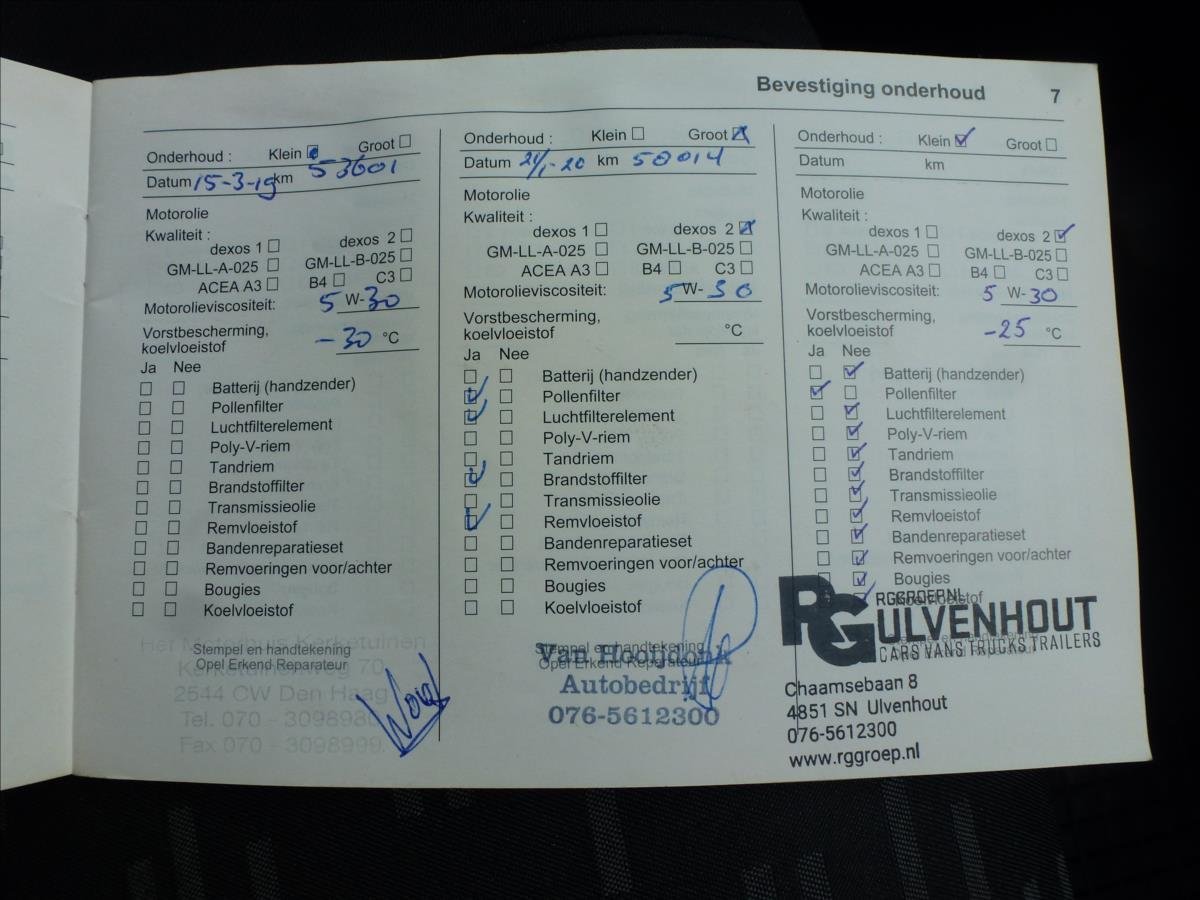 Bevestiging onderhoud 7
Onderhoud : Klein Groot
Datum 15-3-19 km 53601
Motorolie
Kwaliteit :
dexos 1 dexos 2
GM-LL-A-025 GM-LL-B-025
ACEA A3 B4 C3
Motorolieviscositeit: 5 W-30
Vorstbescherming,
koelvloeistof -30 °C
Ja Nee
Batterij (handzender)
Pollenfilter
Luchtfilterelement
Poly-V-riem
Tandriem
Brandstoffilter
Transmissieolie
Remvloeistof
Bandenreparatieset
Remvoeringen voor/achter
Bougies
Koelvloeistof
Stempel en handtekening
Opel Erkend Reparateur
Het Motorhuis Kerketuinen
Kerketuinenweg 70
2544 CW Den Haag
Tel. 070 - 309898
Fax 070 - 3098999
Onderhoud : Klein Groot
Datum 21/1-20 km 58014
Motorolie
Kwaliteit :
dexos 1 dexos 2
GM-LL-A-025 GM-LL-B-025
ACEA A3 B4 C3
Motorolieviscositeit: 5 W-30
Vorstbescherming,
koelvloeistof °C
Ja Nee
Batterij (handzender)
Pollenfilter
Luchtfilterelement
Poly-V-riem
Tandriem
Brandstoffilter
Transmissieolie
Remvloeistof
Bandenreparatieset
Remvoeringen voor/achter
Bougies
Koelvloeistof
Stempel en handtekening
Opel Erkend Reparateur
Van Hooijdonk
Autobedrijf
076-5612300
Onderhoud : Klein Groot
Datum km
Motorolie
Kwaliteit :
dexos 1 dexos 2
GM-LL-A-025 GM-LL-B-025
ACEA A3 B4 C3
Motorolieviscositeit: 5 W-30
Vorstbescherming,
koelvloeistof -25 °C
Ja Nee
Batterij (handzender)
Pollenfilter
Luchtfilterelement
Poly-V-riem
Tandriem
Brandstoffilter
Transmissieolie
Remvloeistof
Bandenreparatieset
Remvoeringen voor/achter
Bougies
Koelvloeistof
RGGROEP.NL
RG ULVENHOUT
CARS VANS TRUCKS TRAILERS
Chaamsebaan 8
4851 SN Ulvenhout
076-5612300
www.rggroep.nl